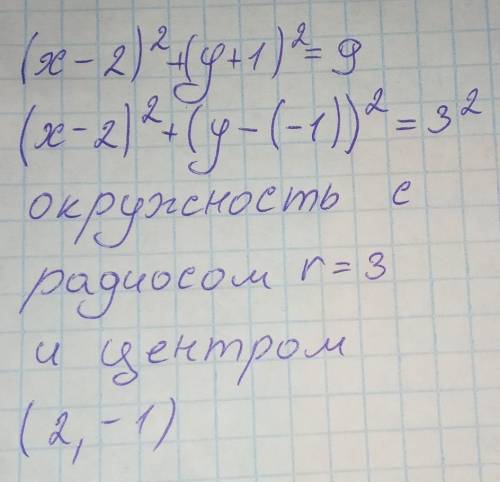 (x-2)²+(y+1)²=9
(x-2)²+(y-(-1))²=3²
окружность с
радиосом r=3
и центром
(2,-1)